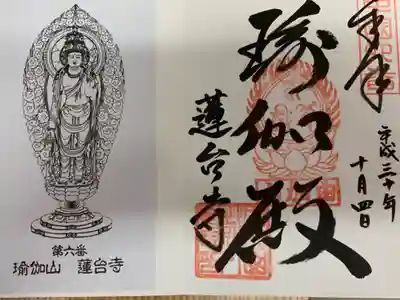 奉拝
平成三十年
十月四日
瑜伽殿
蓮台寺
第六番
瑜伽山 蓮台寺